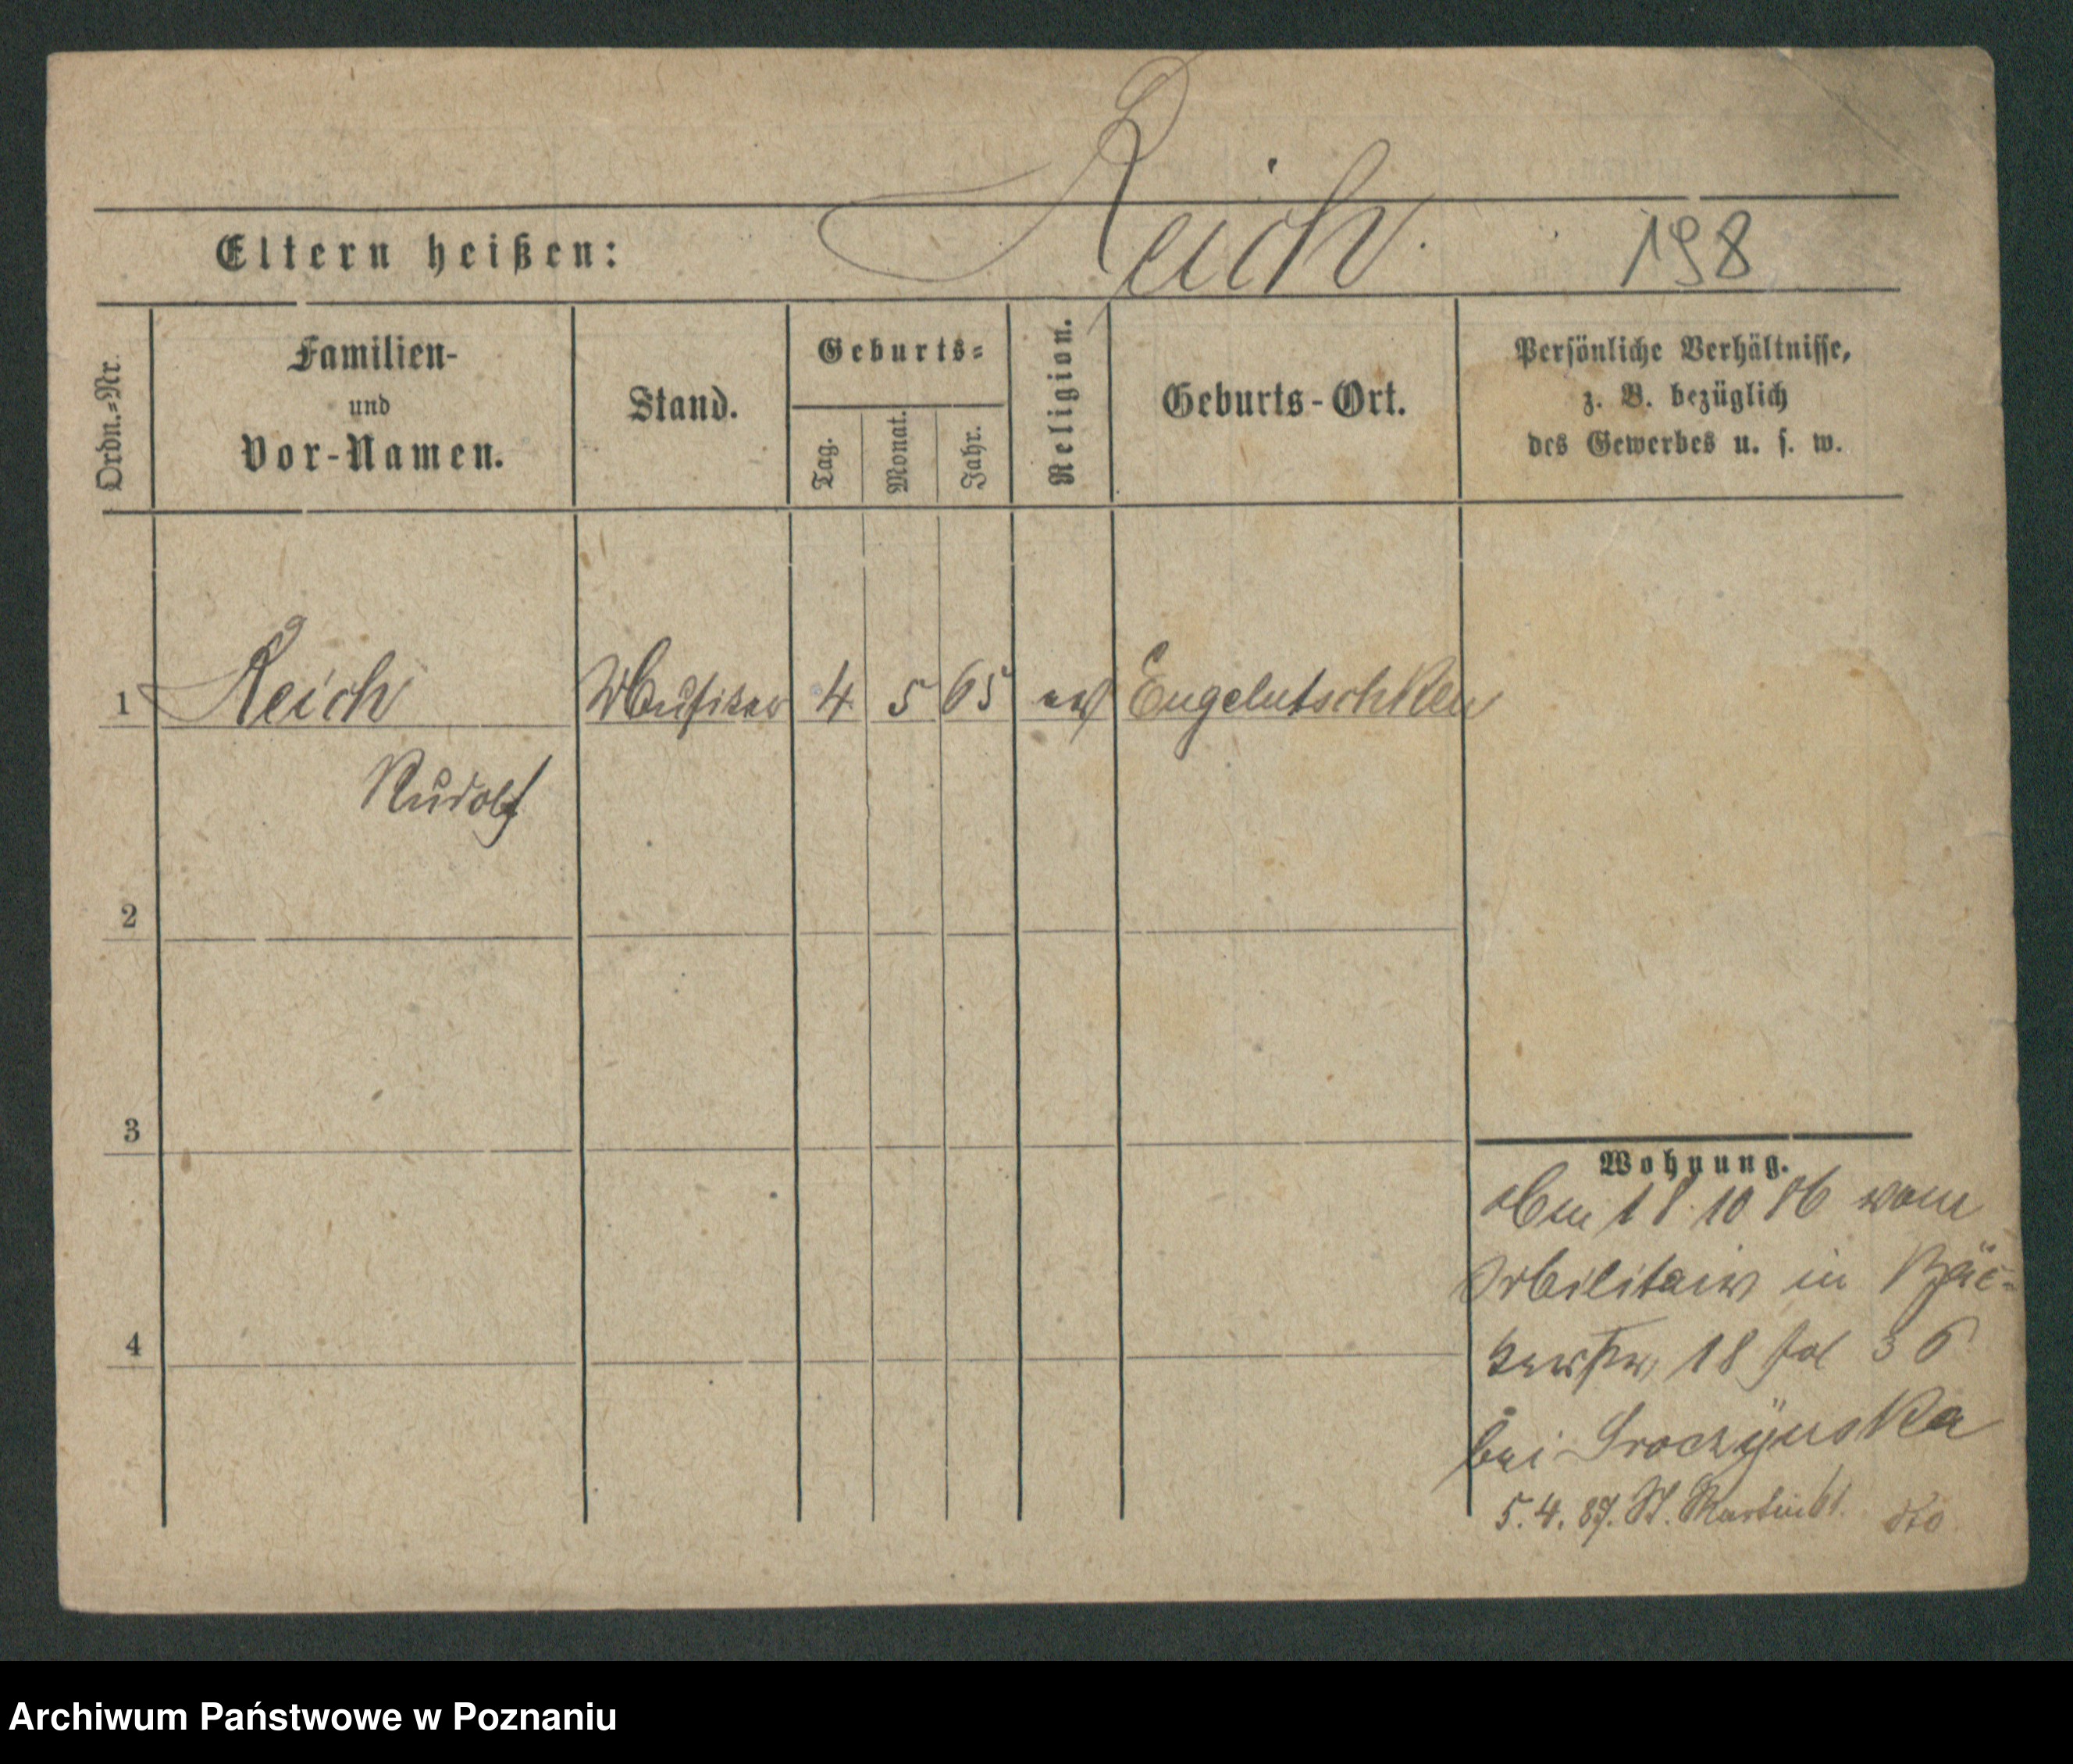 Reich.
198
Eltern heißen:
Ordn.=Nr.
Familien-
und
Vor-Namen.
Stand.
Geburts=
Tag.
Monat.
Jahr.
Religion.
Geburts-Ort.
Persönliche Verhältnisse,
z. B. bezüglich
des Gewerbes u. s. w.
1 Reich Musiker 4 5 65 ev
Rudolf
2
3
4
Wohnung.
18 10 86 vom
Militair in Bäc-
kerstr, 18 36
bei Sroczynska
5. 4. 87. St. Martin 61.
Archiwum Państwowe w Poznaniu